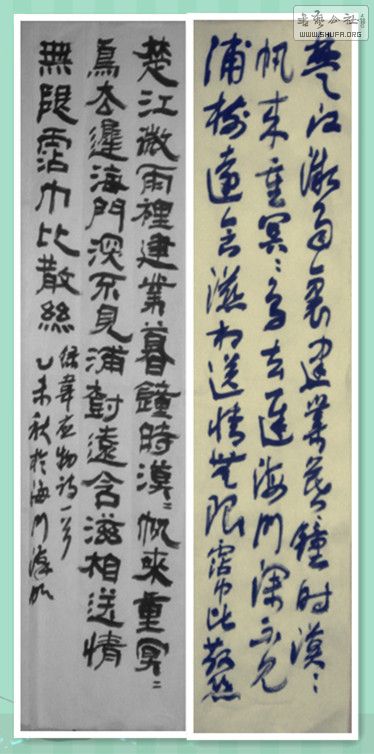 书艺公社
WWW.SHUFA.ORG
楚江微雨裏建業暮鐘時漠〻
帆来重冥〻鳥去遲海門深不見
浦樹遠含滋相送情無限霑巾比散絲
楚江微雨裡建業暮鐘時漠〻帆來重冥〻
鳥去遲海門深不見浦樹遠含滋相送情
無限霑巾比散絲
録韋应物詩一首
乙未秋於海门